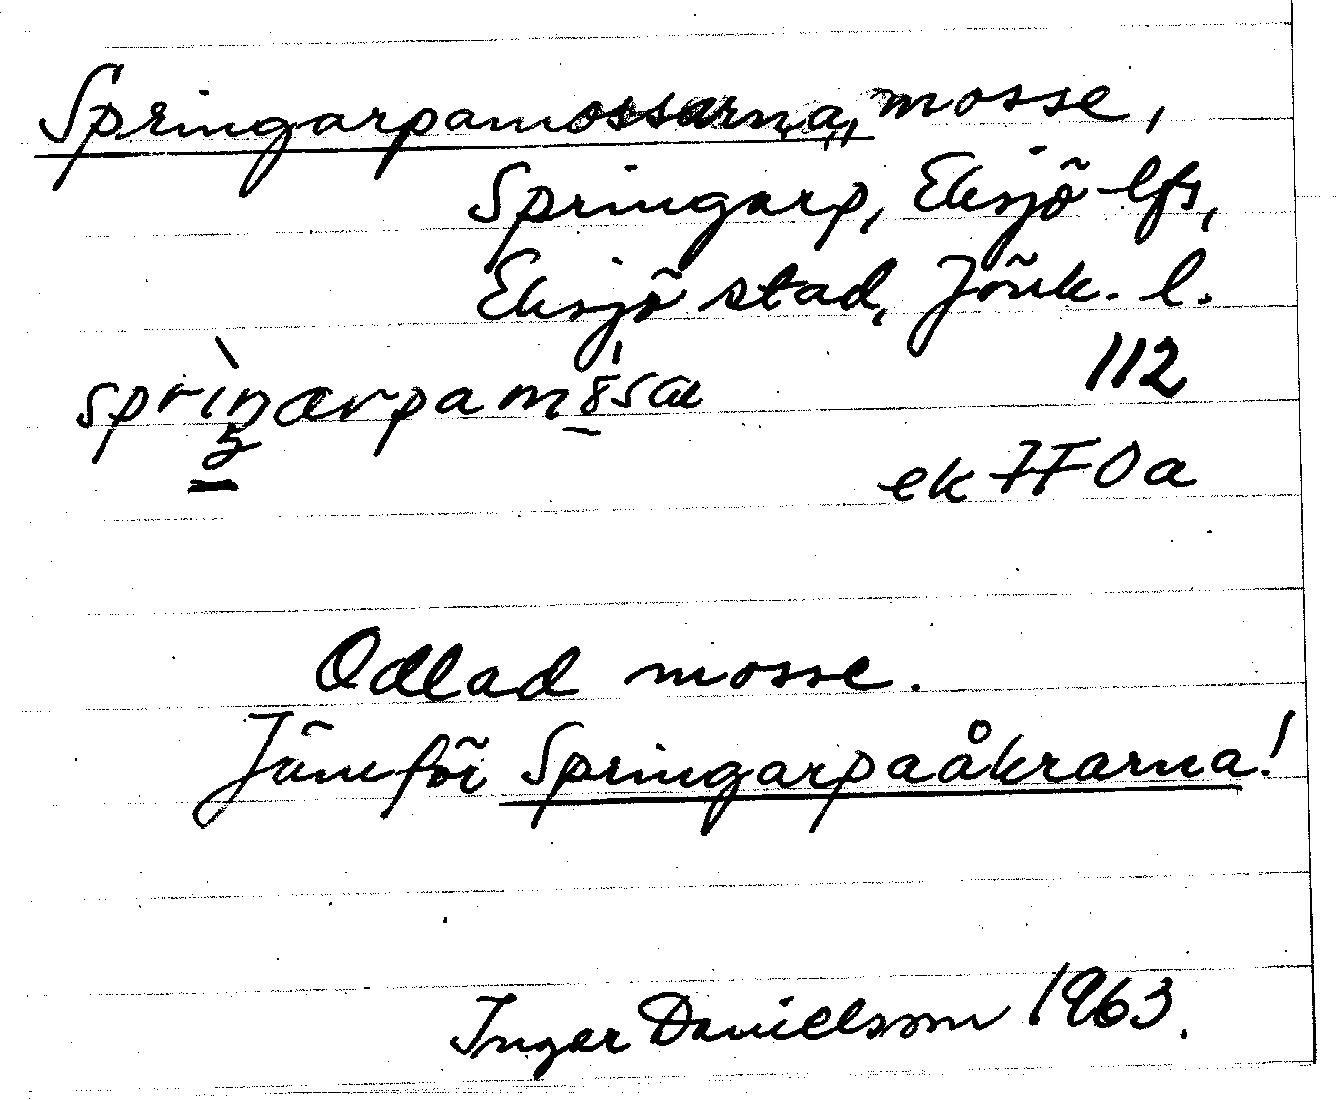 Springarpamossarna, mosse,
Springarp, Eksjö lfs,
Eksjö stad, Jönk. l.
112
ek 7F0a
Odlad mosse.
Jämför Springarpaåkrarna!
Inger Danielsson 1963.